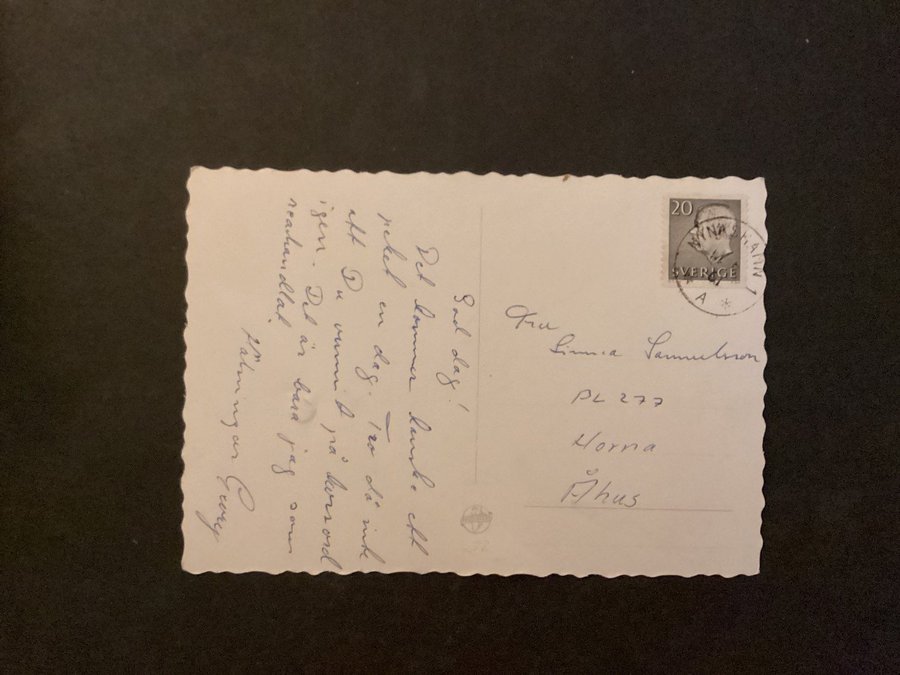 God dag!
Det kommer kanske ett
paket en dag. Tro då inte
att Du vunnit på korsord
igen. Det är bara jag som
reahandlat.
Hälsningar Georg
20
SVERIGE
NYNÄSHAMN 1
A
Fru
Linnea Samuelsson
PL 277
Horna
Åhus